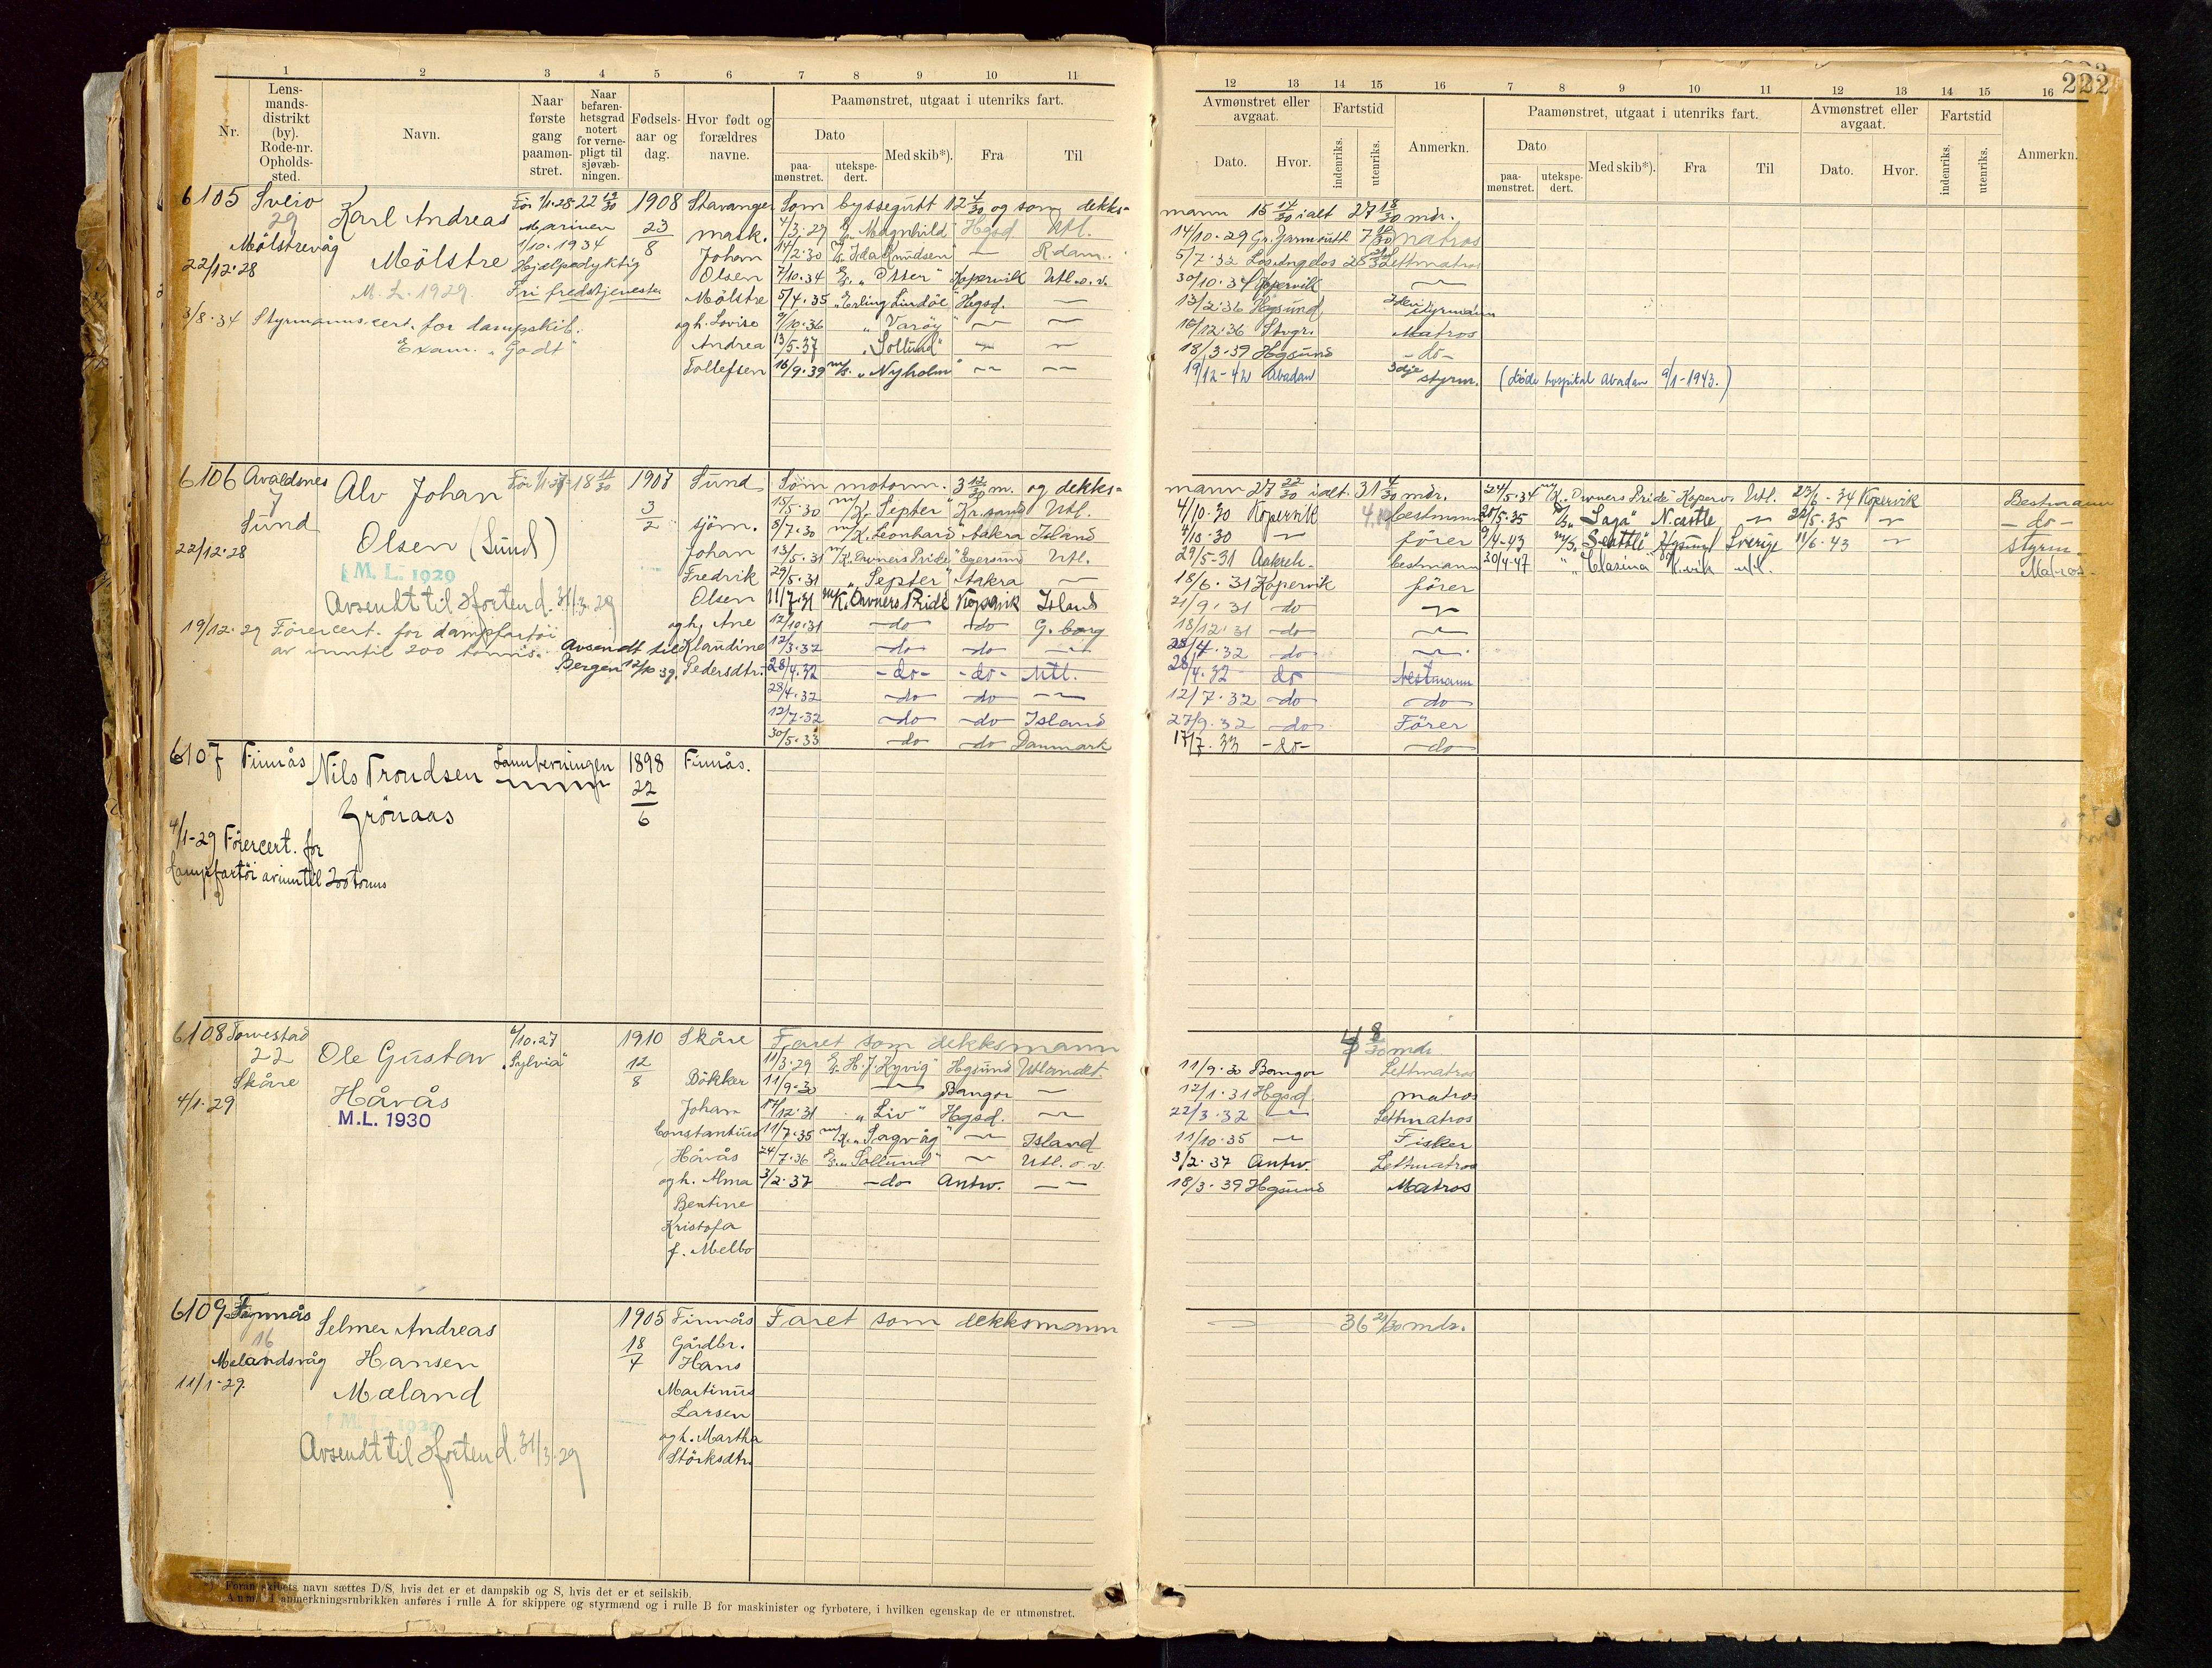 222
1 2 3 4 5 6 7 8 9 10 11
Nr.
Lens-
mands-
distrikt
(by).
Rode-nr.
Opholds-
sted.
Navn.
Naar
første
gang
paamøn-
stret.
Naar
befaren-
hetsgrad
notert
for verne-
pligt til
sjøvæb-
ningen.
Fødsels-
aar og
dag.
Hvor født og
forældres
navne.
Paamønstret, utgaat i utenriks fart.
Dato
paa-
mønstret.
utekspe-
dert.
Med skib*).
Fra
Til
12 13 14 15 16 7 8 9 10 11 12 13 14 15 16
Avmønstret eller
avgaat.
Dato.
Hvor.
Fartstid
indenriks.
utenriks.
Anmerkn.
Paamønstret, utgaat i utenriks fart.
Dato
paa-
mønstret.
utekspe-
dert.
Med skib*).
Fra
Til
Avmønstret eller
avgaat.
Dato.
Hvor.
Fartstid
indenriks.
utenriks.
Anmerkn.
6105 Sveio
29
Mölstrevåg
22/12.28
Karl Andreas
Mölstre
M.L. 1929.
Før 1/1.28
Marinen
1/10.1934
Hjælpedyktig
Fri fredstjeneste
1908
23/8
Stavanger
mask.
Johan
Olsen
Mölstre
og h. Lovise
Andrea
Tollefsen
3/8.34 Styrmannscert. for dampskib.
Exam. "Godt"
Som byssegutt 12 4/30 og som dekks-
mann 15 14/30 ialt 27 18/30 mdr.
4/3.29 Magnhild Hgsd Utl. 14/10.29 Gr. Yarmouth matros
14/2.30 Ida Knudsen — R.dam. 5/7.32 Los Angelos Lettmatros
7/10.34 "Otter" Kopervik Utl.o.v. 30/10.34 Kopervik —
5/4.35 "Erling Lindöe" Hgsd. — 13/2.36 Hgsund styrmann
9/10.36 "Varöy" — — 16/12.36 Stvgr. Matros
13/5.37 "Sollund" — — 18/3.39 Hgsund -do-
16/9.39 m/s. "Nyholm" — — 19/12-42 Abadan 3dje styrm. (Døde hospital Abadan 9/1-1943.)
6106 Avaldsnes
7
Sund
22/12.28
Alv Johan
Olsen (Sund)
M.L. 1929
Avsendt til Horten d. 31/3.29
19/12.29 Förercert. for dampfartöi
av inntil 200 tonns.
Avsendt til
Bergen 12/10 39.
18 11/30
1907
3/2
Sund
sjöm.
Johan
Fredrik
Olsen
og h. Ane
Klaudine
Pedersdtr.
Som motorm. 3 12/30 m. og dekks-
mann 27 22/30 ialt 31 4/30 mdr.
15/5.30 m/k. "Septer" Kr.sand Utl. 4/10.30 Kopervik bestmann
5/7.30 m/k. Leonhard Aakra Island 4/10.30 — förer
13/5.31 m/k. Owners Pride Egersund Utl. 29/5-31 Aakreh. bestmann
29/5.31 "Septer" Aakra — 18/6.31 Kopervik förer
11/7.31 m/k. Owners Pride Kopervik Island 21/9.31 -do- —
12/10.31 -do- -do- G.borg 18/12.31 -do- —
12/3.32 -do- -do- — 28/4.32 -do- —
28/4.32 -do- -do- Utl. 28/4.32 do bestmann
28/4.32 -do- -do- — 12/7.32 -do- -do-
12/7.32 -do- -do- Island 27/9.32 -do- Förer
30/5.33 -do- -do- Danmark 17/7.33 -do- -do-
24/5.34 m/k. Owners Pride Koperv. Utl. 23/6-34 Kopervik Bestmann
20/5.35 "Saga" N.castle — 22/5.35 — -do-
9/4-43 m/s. "Seattle" Hgsund Sverige 11/6-43 — styrm.
30/4-47 " "Clasina" K.vik utl. Matros.
6107 Finnås
Nils Trondsen
Grönaas
Lannberningen
1898
22/6
Finnås.
4/1-29 Förercert. for
dampfartöi av inntil 200 tonns
6108 Torvestad
22
Skåre
4/1.29
Ole Gustav
Håvås
M.L. 1930
6/10.27
"Sylvia"
1910
12/8
Skåre
Bökker
Johan
Constantius
Håvås
og h. Alma
Bentine
Kristofa
f. Melbo
Faret som dekksmann
8/30 mdr.
11/3.29 H.J. Kyvig Hgsund Utlandet. 11/9.30 Bangor Lettmatros
11/9.30 — Bangor — 12/1.31 Hgsd. matros
17/12.31 "Liv" Hgsd. — 22/3.32 — Lettmatros
11/7.35 m/k. "Sagvåg" — Island 11/10.35 — Fisker
24/7.36 "Sollund" — Utl.o.v. 3/2.37 Antw. Lettmatros
3/2.37 -do- Antw. — 18/3.39 Hgsund Matros
6109 Finnås
16
Melandsvåg
11/1-29.
Selmer Andreas
Hansen
Mæland
M.L. 1929
Avsendt til Horten d. 31/3.29
1905
18/4
Finnås
Gårdbr.
Hans
Martinus
Larsen
og h. Martha
Störksdtr.
Faret som dekksmann
— 36 21/30 mdr.
*) Foran skibets navn sættes D/S, hvis det er et dampskib og S, hvis det er et seilskib.
Anm. I anmerkningsrubrikken anføres i rulle A for skippere og styrmænd og i rulle B for maskinister og fyrbøtere, i hvilken egenskap de er utmønstret.